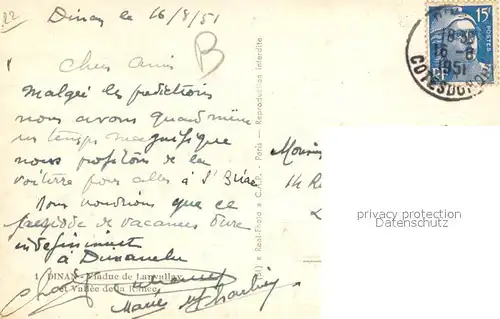 22
Dinan le 16/8/51
B
Chers amis
Malgré les prédictions
nous avons quand même
un temps magnifique
nous profitons de la
voiture pour aller à St Briac
nous voudrions que ce
période de vacances dure
indéfiniment
à Dimanche
1 DINAN - Viaduc de Lanvallay
et Vallée de la Rance
Marie
Charles
(M) e Real-Photo e C.A.P. - Paris — Reproduction Interdite
Monsieu
14 R
15F
POSTES
18 30
16 - 8
1951
COTES DU NORD
privacy protection
Datenschutz